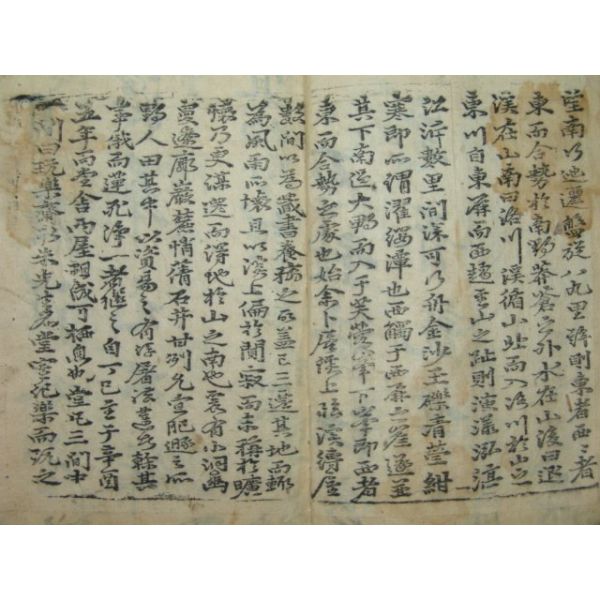 望南行迤邐盤旋八九里許則東者西〻者
東而合勢於南野莽蒼之外水在山後曰退
溪在山南曰洛川溪循山北而入洛川於山之
東川自東屏而西趨至山之趾則演漾泓渟
江泝數里間深可行舟金沙玉礫清瑩紺
寒即所謂濯纓潭也西觸于西屏之崖遂並
其下南過大野而入于芙蓉峯下峯即西者
東而合勢之處也始余卜居溪上臨溪縛屋
數間以爲藏書養拙之所蓋已三遷其地而輒
爲風雨所壞且以溪上偏於闃寂而不稱於曠
懷乃更謀遷而得地於山之南也爰有小洞幽
敻遼廓巖麓悄蒨石井甘冽允宜肥遯之所
野人田其中以資易之有浮屠法蓮者幹其
事俄而蓮死淨一者繼之自丁巳至于辛酉
五年而堂舍兩屋粗成可栖息也堂凡三間中
一間曰玩樂齋取朱先生名堂室記樂而玩之